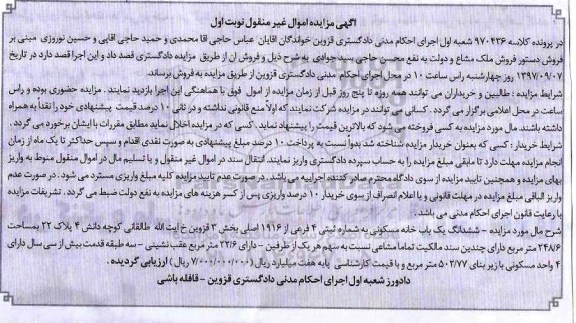 آگهی مزایده اموال غیر منقول نوبت اول
در پرونده کلاسه ۹۷۰۴۳۶ شعبه اول اجرای احکام مدنی دادگستری قزوین خواندگان اقایان عباس حاجی اقا محمدی و حمید حاجی اقایی و حسین نوروزی مبنی بر
فروش دستور فروش ملک مشاع و دولت به نفع محسن حاجی سیدجوادی به شرح ذیل و فروش ان از طریق مزایده دادگستری قصد داد و این اجرا قصد دارد در تاریخ
۱۳۹۷/۰۹/۰۷ روز چهارشنبه راس ساعت ۱۰ در محل اجرای احکام مدنی دادگستری قزوین از طریق مزایده به فروش برساند.
شرایط مزایده : طالبین و خریداران می توانند همه روزه تا پنج روز قبل از زمان مزایده از اموال فوق با هماهنگی این اجرا بازدید نمایند . مزایده حضوری بوده و راس
ساعت در محل اعلامی برگزار می گردد . کسانی می توانند در مزایده شرکت نمایند که اولاً منع قانونی نداشته و در ثانی ۱۰ درصد قیمت پیشنهادی خود را نقداً به همراه
داشته باشند. مال مورد مزایده به کسی فروخته می شود که بالاترین قیمت را پیشنهاد نماید. کسی که در مزایده اخلال نماید مطابق مقررات با ایشان برخورد می گردد .
شرایط خریدار : کسی که بعنوان خریدار مزایده شناخته شد بدوا نسبت به پرداخت ۱۰ درصد مبلغ پیشنهادی به صورت نقدی اقدام و سپس حداکثر تا یک ماه از زمان
انجام مزایده مهلت دارد تا مابقی مبلغ مزایده را به حساب سپرده دادگستری واریز نمایند. انتقال سند در اموال غیر منقول و یا تسلیم مال در اموال منقول منوط به واریز
بهای مزایده و همچنین تایید مزایده از سوی دادگاه محترم صادر کننده اجراییه می باشد . در صورت عدم تایید مزایده کلیه مبلغ واریزی مسترد می شود . در صورت عدم
واریز الباقی مبلغ مزایده در مهلت قانونی و یا اعلام انصراف از سوی خریدار ۱۰ درصد واریزی پس از کسر هزینه های مزایده به نفع دولت ضبط می گردد . تشریفات مزایده
با رعایت قانون اجرای احکام مدنی می باشد .
شرح مال مورد مزایده - ششدانگ یک باب خانه مسکونی به شماره ثبتی ۴ فرعی از ۱۹۱۶ اصلی بخش ۳ قزوین خ ایت الله طالقانی کوچه دانش ۴ پلاک ۲۲ بمساحت
۲۴۸/۶ متر مربع دارای چندین سند مالکیت تماما مشاعی نسبت به سهم هر یک از طرفین - دارای ۲۲/۶ متر مربع عقب نشینی - سه طبقه قدمت بیش از سی سال دارای
۴ واحد مسکونی با زیر بنای ۵۰۲/۷۷ متر مربع و با قیمت کارشناسی پایه هفت میلیارد ریال (۷/۰۰۰/۰۰۰/۰۰۰ ریال ) ارزیابی گردیده .
دادورز شعبه اول اجرای احکام مدنی دادگستری قزوین - قافله باشی